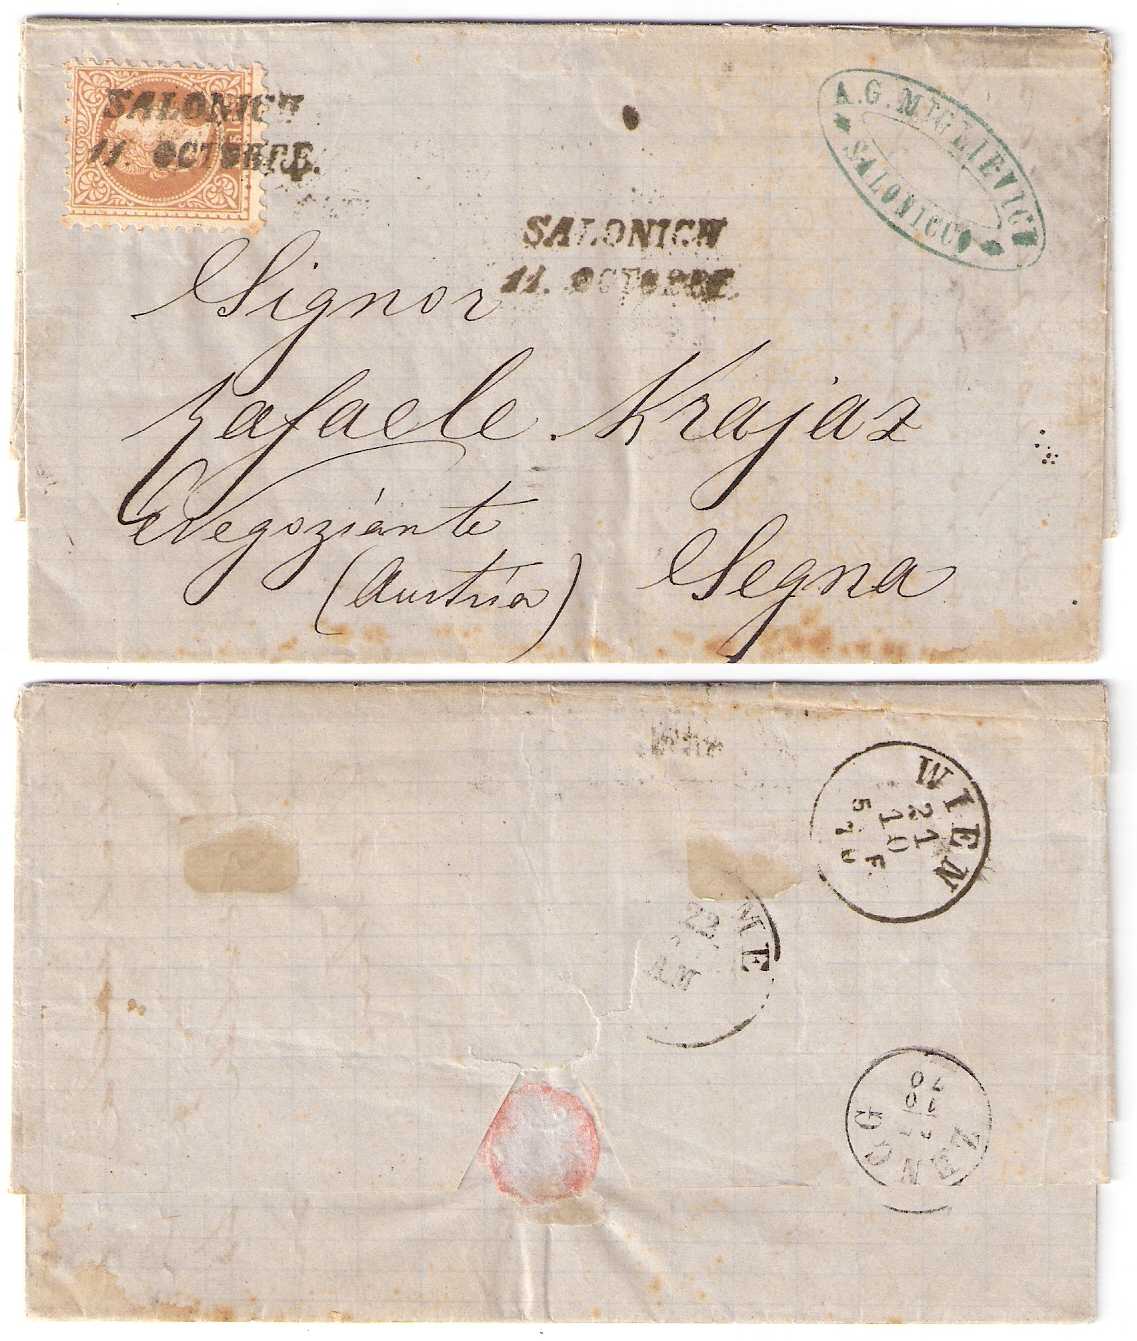 SALONICH
11. OCTOBRE.
A. G. MIGLIEVICH
SALONICCO
SALONICH
11. OCTOBRE.
Signor
Rafaele Krajaz
Negoziante
(Austria) Segna
WIEN
21
10
5 F
70
ME
22
A.M
ZENGG
10
70